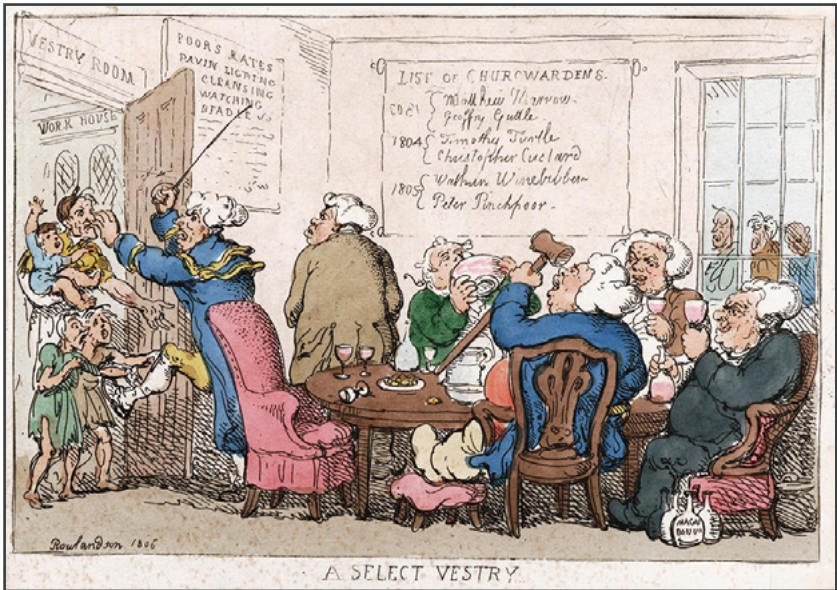 VESTRY ROOM
WORK HOUSE
POORS RATES
PAVIN LIGHTING
CLEANSING
WATCHING
BEADLE
LIST OF CHURCWARDENS.
Matthew Marrow.
Geoffry Guttle
1804 Timothy Turtle
Christopher Custard
1805 Wathen Winebibber
Peter Pinchpoor.
MACAI
Rowlandson 1806
A SELECT VESTRY